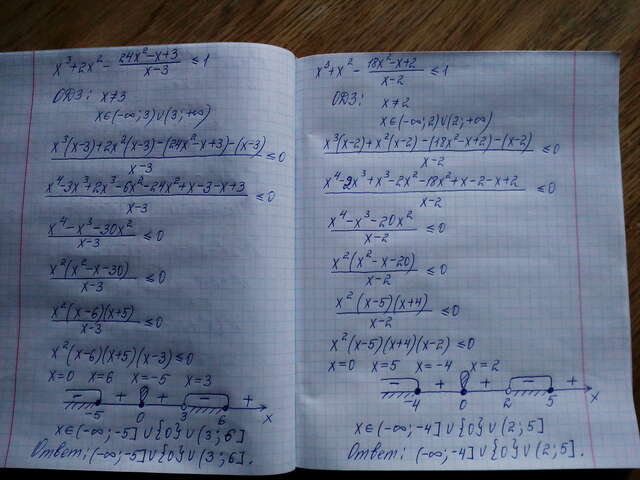 x³+2x²- (24x²-x+3)/(x-3) ≤1
ОДЗ: x≠3
x∈(-∞;3)∪(3;+∞)
(x³(x-3)+2x²(x-3)-(24x²-x+3)-(x-3))/(x-3) ≤0
(x⁴-3x³+2x³-6x²-24x²+x-3-x+3)/(x-3) ≤0
(x⁴-x³-30x²)/(x-3) ≤0
(x²(x²-x-30))/(x-3) ≤0
(x²(x-6)(x+5))/(x-3) ≤0
x²(x-6)(x+5)(x-3)≤0
x=0 x=6 x=-5 x=3
- + + - +
-5 0 3 6 x
x∈(-∞;-5]∪{0}∪(3;6]
Ответ: (-∞;-5]∪{0}∪(3;6].
x³+x²- (18x²-x+2)/(x-2) ≤1
ОДЗ: x≠2
x∈(-∞;2)∪(2;+∞)
(x³(x-2)+x²(x-2)-(18x²-x+2)-(x-2))/(x-2) ≤0
(x⁴-2x³+x³-2x²-18x²+x-2-x+2)/(x-2) ≤0
(x⁴-x³-20x²)/(x-2) ≤0
(x²(x²-x-20))/(x-2) ≤0
(x²(x-5)(x+4))/(x-2) ≤0
x²(x-5)(x+4)(x-2)≤0
x=0 x=5 x=-4 x=2
- + + - +
-4 0 2 5 x
x∈(-∞;-4]∪{0}∪(2;5]
Ответ: (-∞;-4]∪{0}∪(2;5].